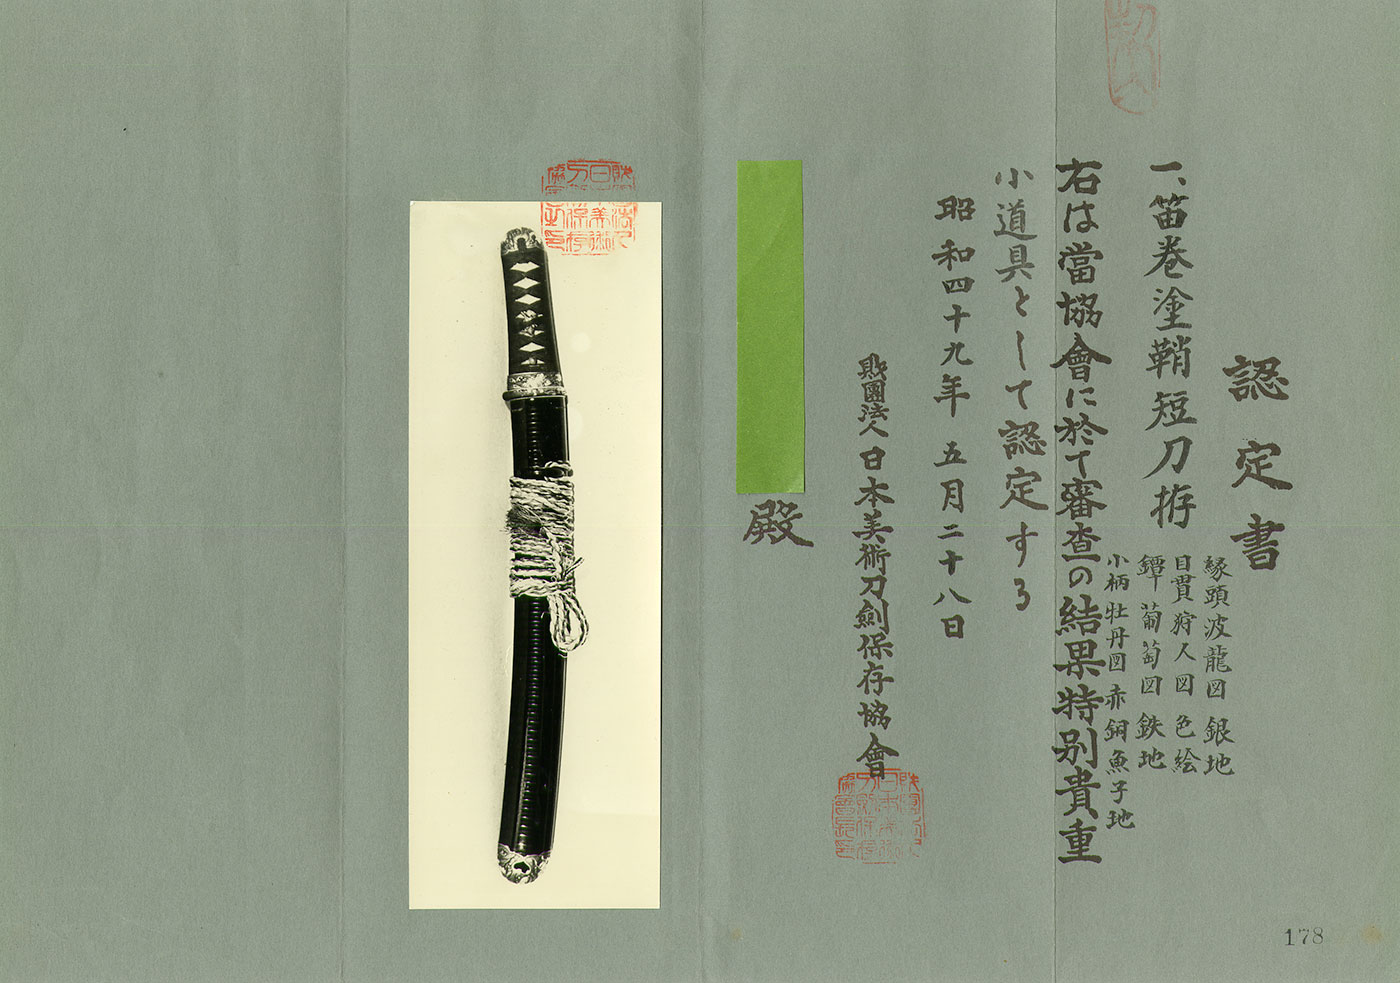 認定書
一、笛巻塗鞘短刀拵
縁頭波龍図 銀地
目貫狩人図 色絵
鐔葡萄図 鉄地
小柄牡丹図 赤銅魚子地
右は當協會に於て審査の結果特別貴重
小道具として認定する
昭和四十九年 五月二十八日
財團法人日本美術刀劍保存協會
殿
178